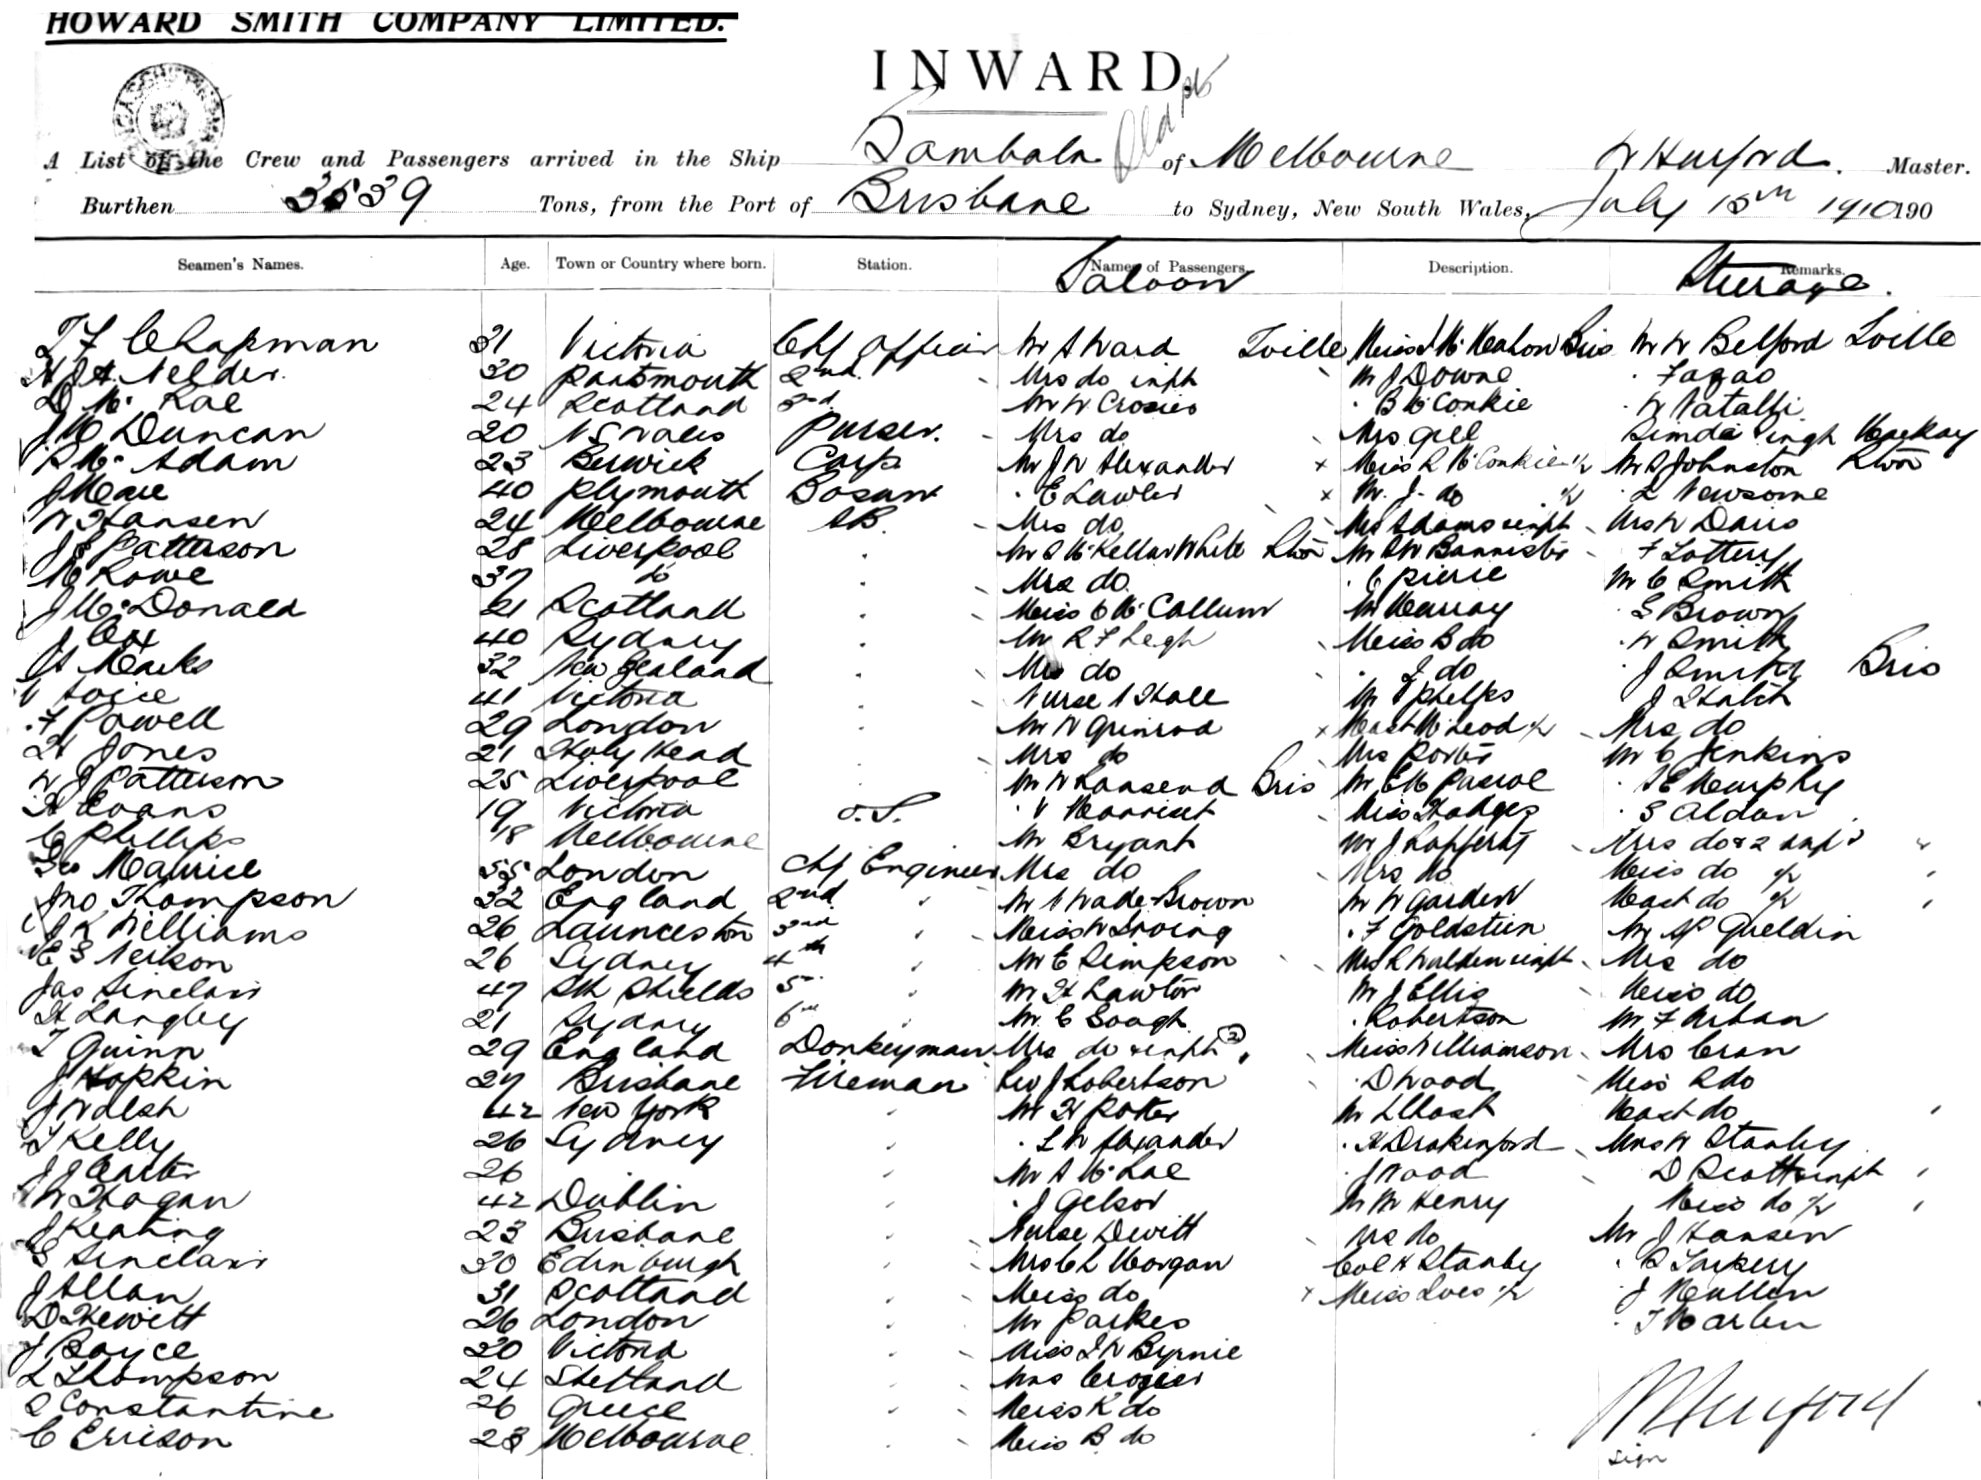 HOWARD SMITH COMPANY LIMITED.
INWARD.
A List of the Crew and Passengers arrived in the Ship Bombala of Melbourne W Hurford. Master.
Burthen 3539 Tons, from the Port of Brisbane to Sydney, New South Wales, July 15th 1910 190
Seamen's Names. Age. Town or Country where born. Station. Names of Passengers Description. Remarks.
Saloon Steerage.
T F Chapman 31 Victoria Chf Officer Mr A Ward Tville Miss J McMahon Bris Mr W Belford Tville
H J A Nelder. 30 Portsmouth 2nd Mrs do inft Mr J Downe Fagao
D Mc Rae 24 Scotland 3rd Mr W Crosier B McConkie
J C Duncan 20 N S Wales Purser. Mrs do Mrs Gill Singh Mackay
R Mc Adam 23 Berwick Carp Mr J W Alexander Miss R McConkie 1/2 Mr S Johnston Rton
J Mare 40 Plymouth Bosun E Lawler Mr. J. do 1/2 L Newsome
W Hansen 24 Melbourne AB. Mrs do Mrs Adams inft Mrs W Davis
J S Patterson 28 Liverpool Mr S McKellar White Rton Mr A W Bannister F Lottery
M Rowe 37 do Mrs do. C Pierie Mr C Smith
J McDonald 21 Scotland Miss C McCallum Mr Murray S Brown
J Cox 40 Sydney Mr R F Legh Miss B do W Smith
A Marks 32 New Zealand Mrs do J do J Smith Bris
41 Victoria Nurse A Hall Mr T Phelps J Hatch
F Powell 29 London Mr W Grimrod Mast McLeod 1/2 Mrs do
H Jones 21 Holy Head Mrs do Mrs Porter Mr C Jenkins
W J Patterson 25 Liverpool Mr W Bris Mr E M Pascoe E Murphy
H Evans 19 Victoria O.S. V Marriset Miss Hodges S Aldon
C Phillips 18 Melbourne Mr Bryant Mr J Lafferty Mrs do & 2 infts
Geo Maurice 55 London Chf Engineer Mrs do Mrs do Miss do 1/2
Jno Thompson 32 England 2nd Mr A Wade-Brown Mr W Garden Mast do 1/2
J K Williams 26 Launceston 3rd Miss W Irving F Goldstien Mr Gueldin
E S Neilson 26 Sydney 4th Mr E Simpson Mrs R Walden inft Mrs do
Jas Sinclair 47 Sth Shields 5th Mr H Lawton Mr J Ellis Miss do
H Langley 21 Sydney 6th Mr C Gough Robertson Mr F Urban
T Quinn 29 England Donkeyman Mrs do & inft (2) Miss Williamson Mrs Cran
J Hopkin 27 Brisbane Fireman Rev J Robertson D Wood Miss R do
J Walsh 42 New York Mr H Potter Mr L Chast Mast do
T Kelly 26 Sydney L W Alexander H Drakenford Mrs W Stanley
J J Carter 26 Mr A McRae J Wood D Scott & inft
W Hogan 42 Dublin J Gelson Mr W Henry Miss do 1/2
J Keating 23 Brisbane Nurse Dewitt Mrs do Mr J Hansen
S Sinclair 30 Edinburgh Mrs C L Morgan Col H Stanley
J Allan 31 Scotland Miss do Miss 1/2 J Mullen
D Hewitt 26 London Mr Parkes T Marlin
J Boyce 30 Victoria Miss I W Byrnie
L Thompson 24 Shetland Mrs Crozier
S Constantine 26 Greece Miss K do
C Ericson 23 Melbourne Miss B do
W Hurford
sign